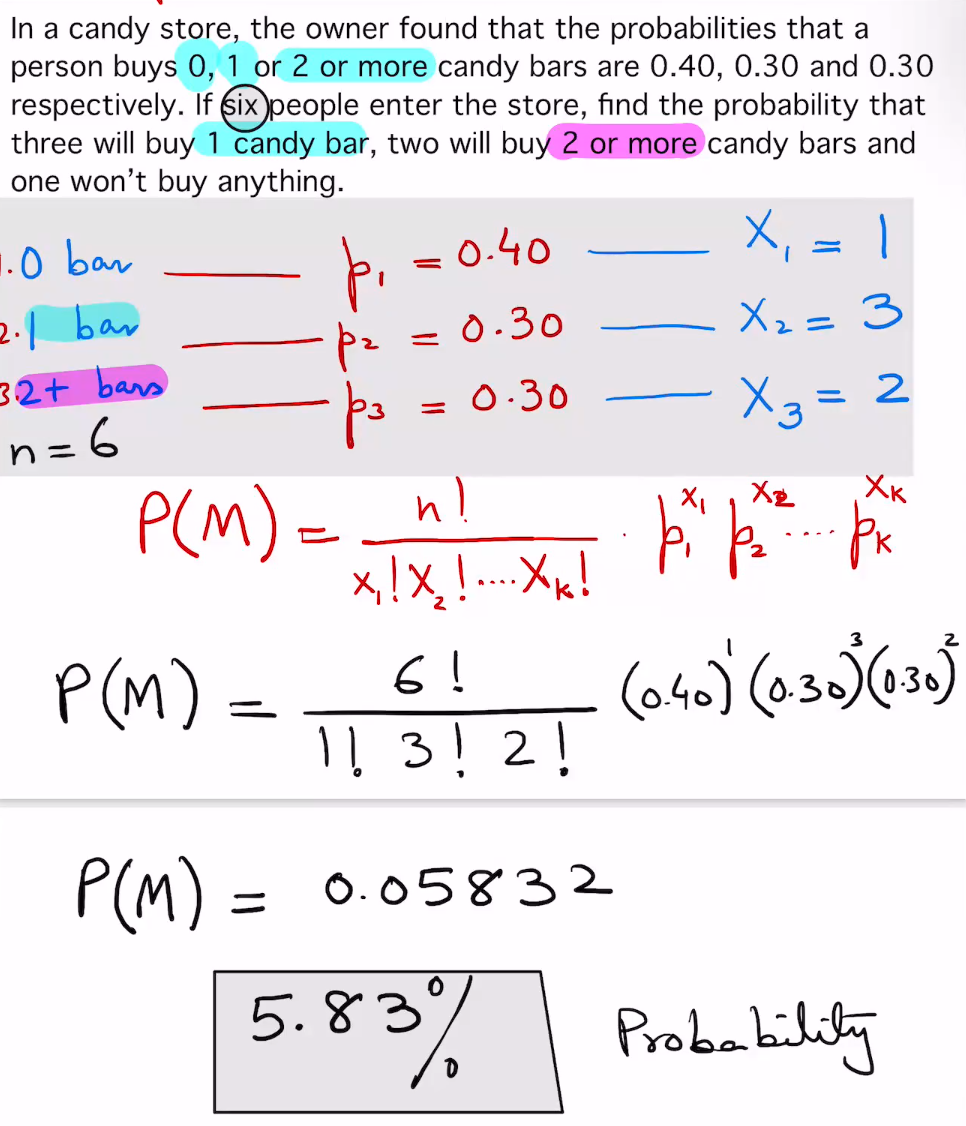 In a candy store, the owner found that the probabilities that a
person buys 0, 1 or 2 or more candy bars are 0.40, 0.30 and 0.30
respectively. If six people enter the store, find the probability that
three will buy 1 candy bar, two will buy 2 or more candy bars and
one won't buy anything.
1. 0 bar —— p₁ = 0.40 —— X₁ = 1
2. 1 bar —— p₂ = 0.30 —— X₂ = 3
3. 2+ bars —— p₃ = 0.30 —— X₃ = 2
n = 6
P(M) = n! / (X₁! X₂! .... Xₖ!) · p₁^X₁ p₂^X₂ .... pₖ^Xₖ
P(M) = 6! / (1! 3! 2!) (0.40)^1 (0.30)^3 (0.30)^2
P(M) = 0.05832
5.83% Probability